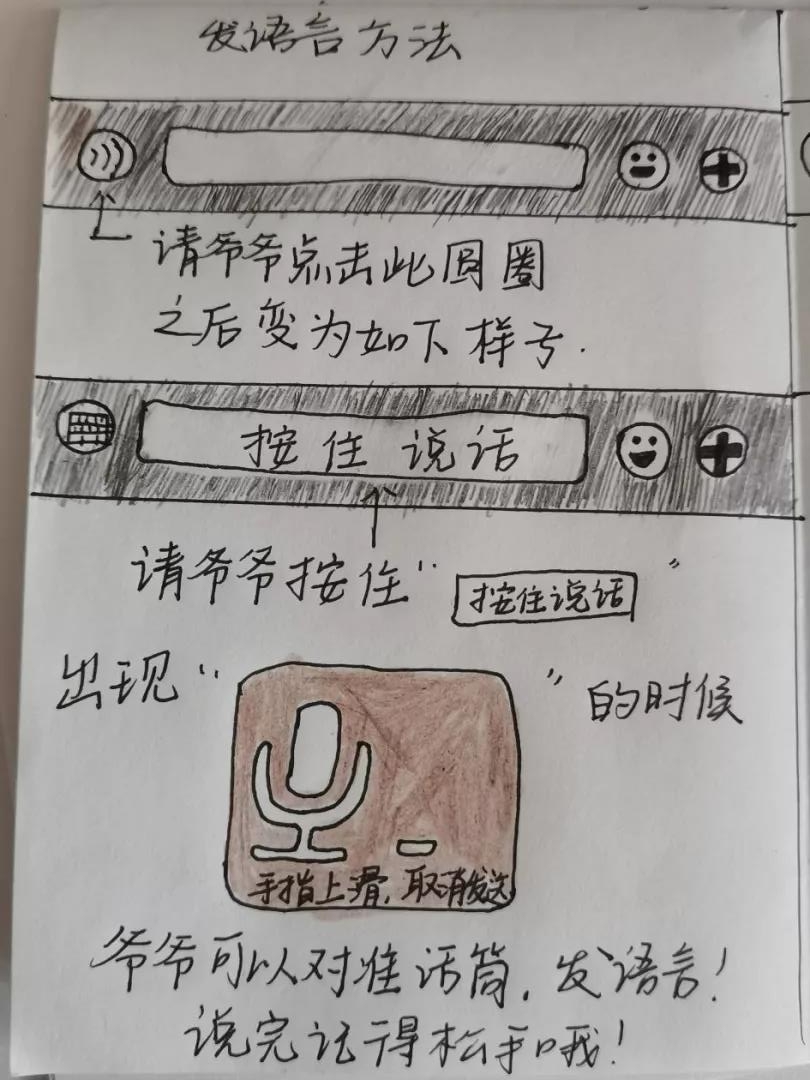 发语言方法
请爷爷点击此圆圈
之后变为如下样号.
按住说话
请爷爷按住“按住说话”
出现“
手指上滑,取消发送
”的时候
爷爷可以对准话筒,发语言!
说完记得松手哦!